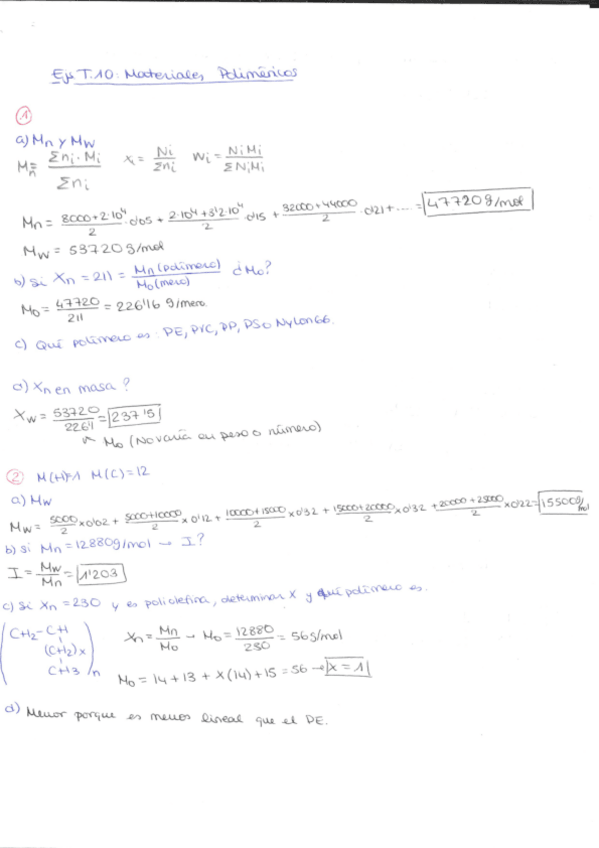 Ejs T.10: Materiales Poliméricos
①
a) Mn y Mw
Mn = Σni·Mi / Σni   xi = Ni / Σni   Wi = NiMi / ΣNiMi
Mn = (8000+2·10⁴)/2 · 0'05 + (2·10⁴+3'2·10⁴)/2 · 0'15 + (32000+44000)/2 · 0'21 + .... = 47720 g/mol
Mw = 53720 g/mol
b) Si Xn = 211 = Mn (polímero) / Mo (mero)   ¿Mo?
Mo = 47720/211 = 226'16 g/mero.
c) Qué polímero es: PE, PVC, PP, PS o Nylon 66.
d) Xn en masa?
Xw = 53720/226'1 = 237'5
Mo (No varía en peso o número)
② M(H)=1 M(C)=12
a) Mw
Mw = 5000/2 x0'02 + (5000+10000)/2 x0'12 + (10000+15000)/2 x0'32 + (15000+20000)/2 x0'32 + (20000+25000)/2 x0'22 = 15500 g/mol
b) Si Mn = 12880 g/mol → I?
I = Mw/Mn = 1'203
c) Si Xn = 230 y es poliolefina, determinar X y qué polímero es.
(CH2-CH   Xn = Mn/Mo → Mo = 12880/230 = 56 g/mol
(CH2)x
CH3)n   Mo = 14 + 13 + x(14) + 15 = 56 → x = 1
d) Menor porque es menos lineal que el PE.